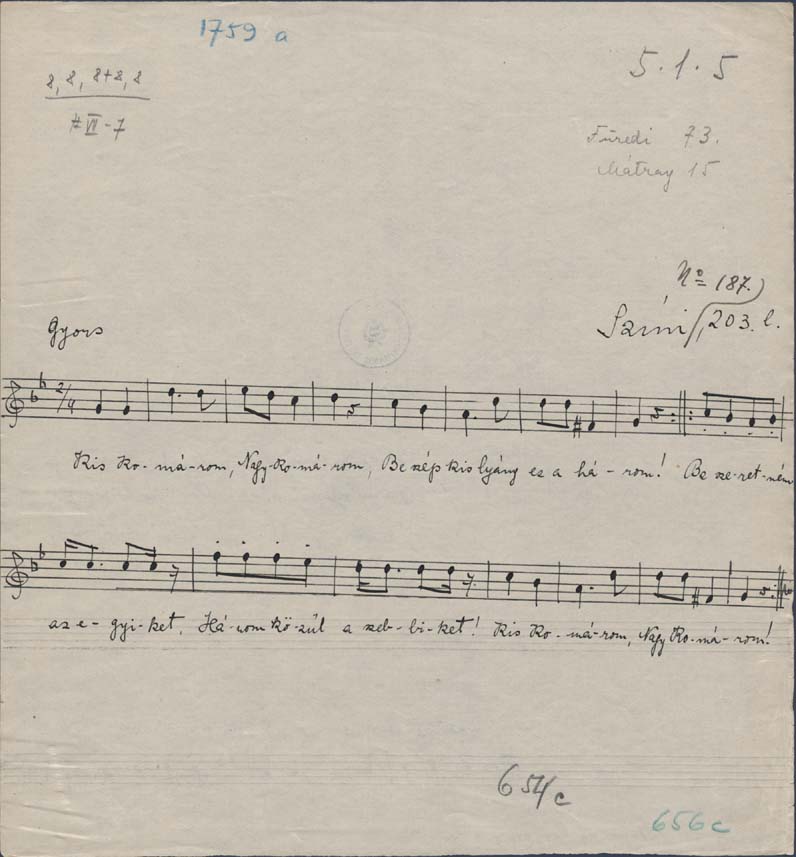 1759 a
8, 8, 8+8, 8
5.1.5
#VII - 7
Füredi 73.
Mátray 15
No 187.)
Színi 203. l.
Gyors
2/4
Kis Ko-má-rom, Nagy-Ko-má-rom, Be szép kis lyány ez a há-rom! Be sze-ret-ném
az e-gyi-ket, Há-rom kö-zűl a szeb-bi-ket! Kis Ko-má-rom, Nagy Ko-má-rom!
654/c
656c